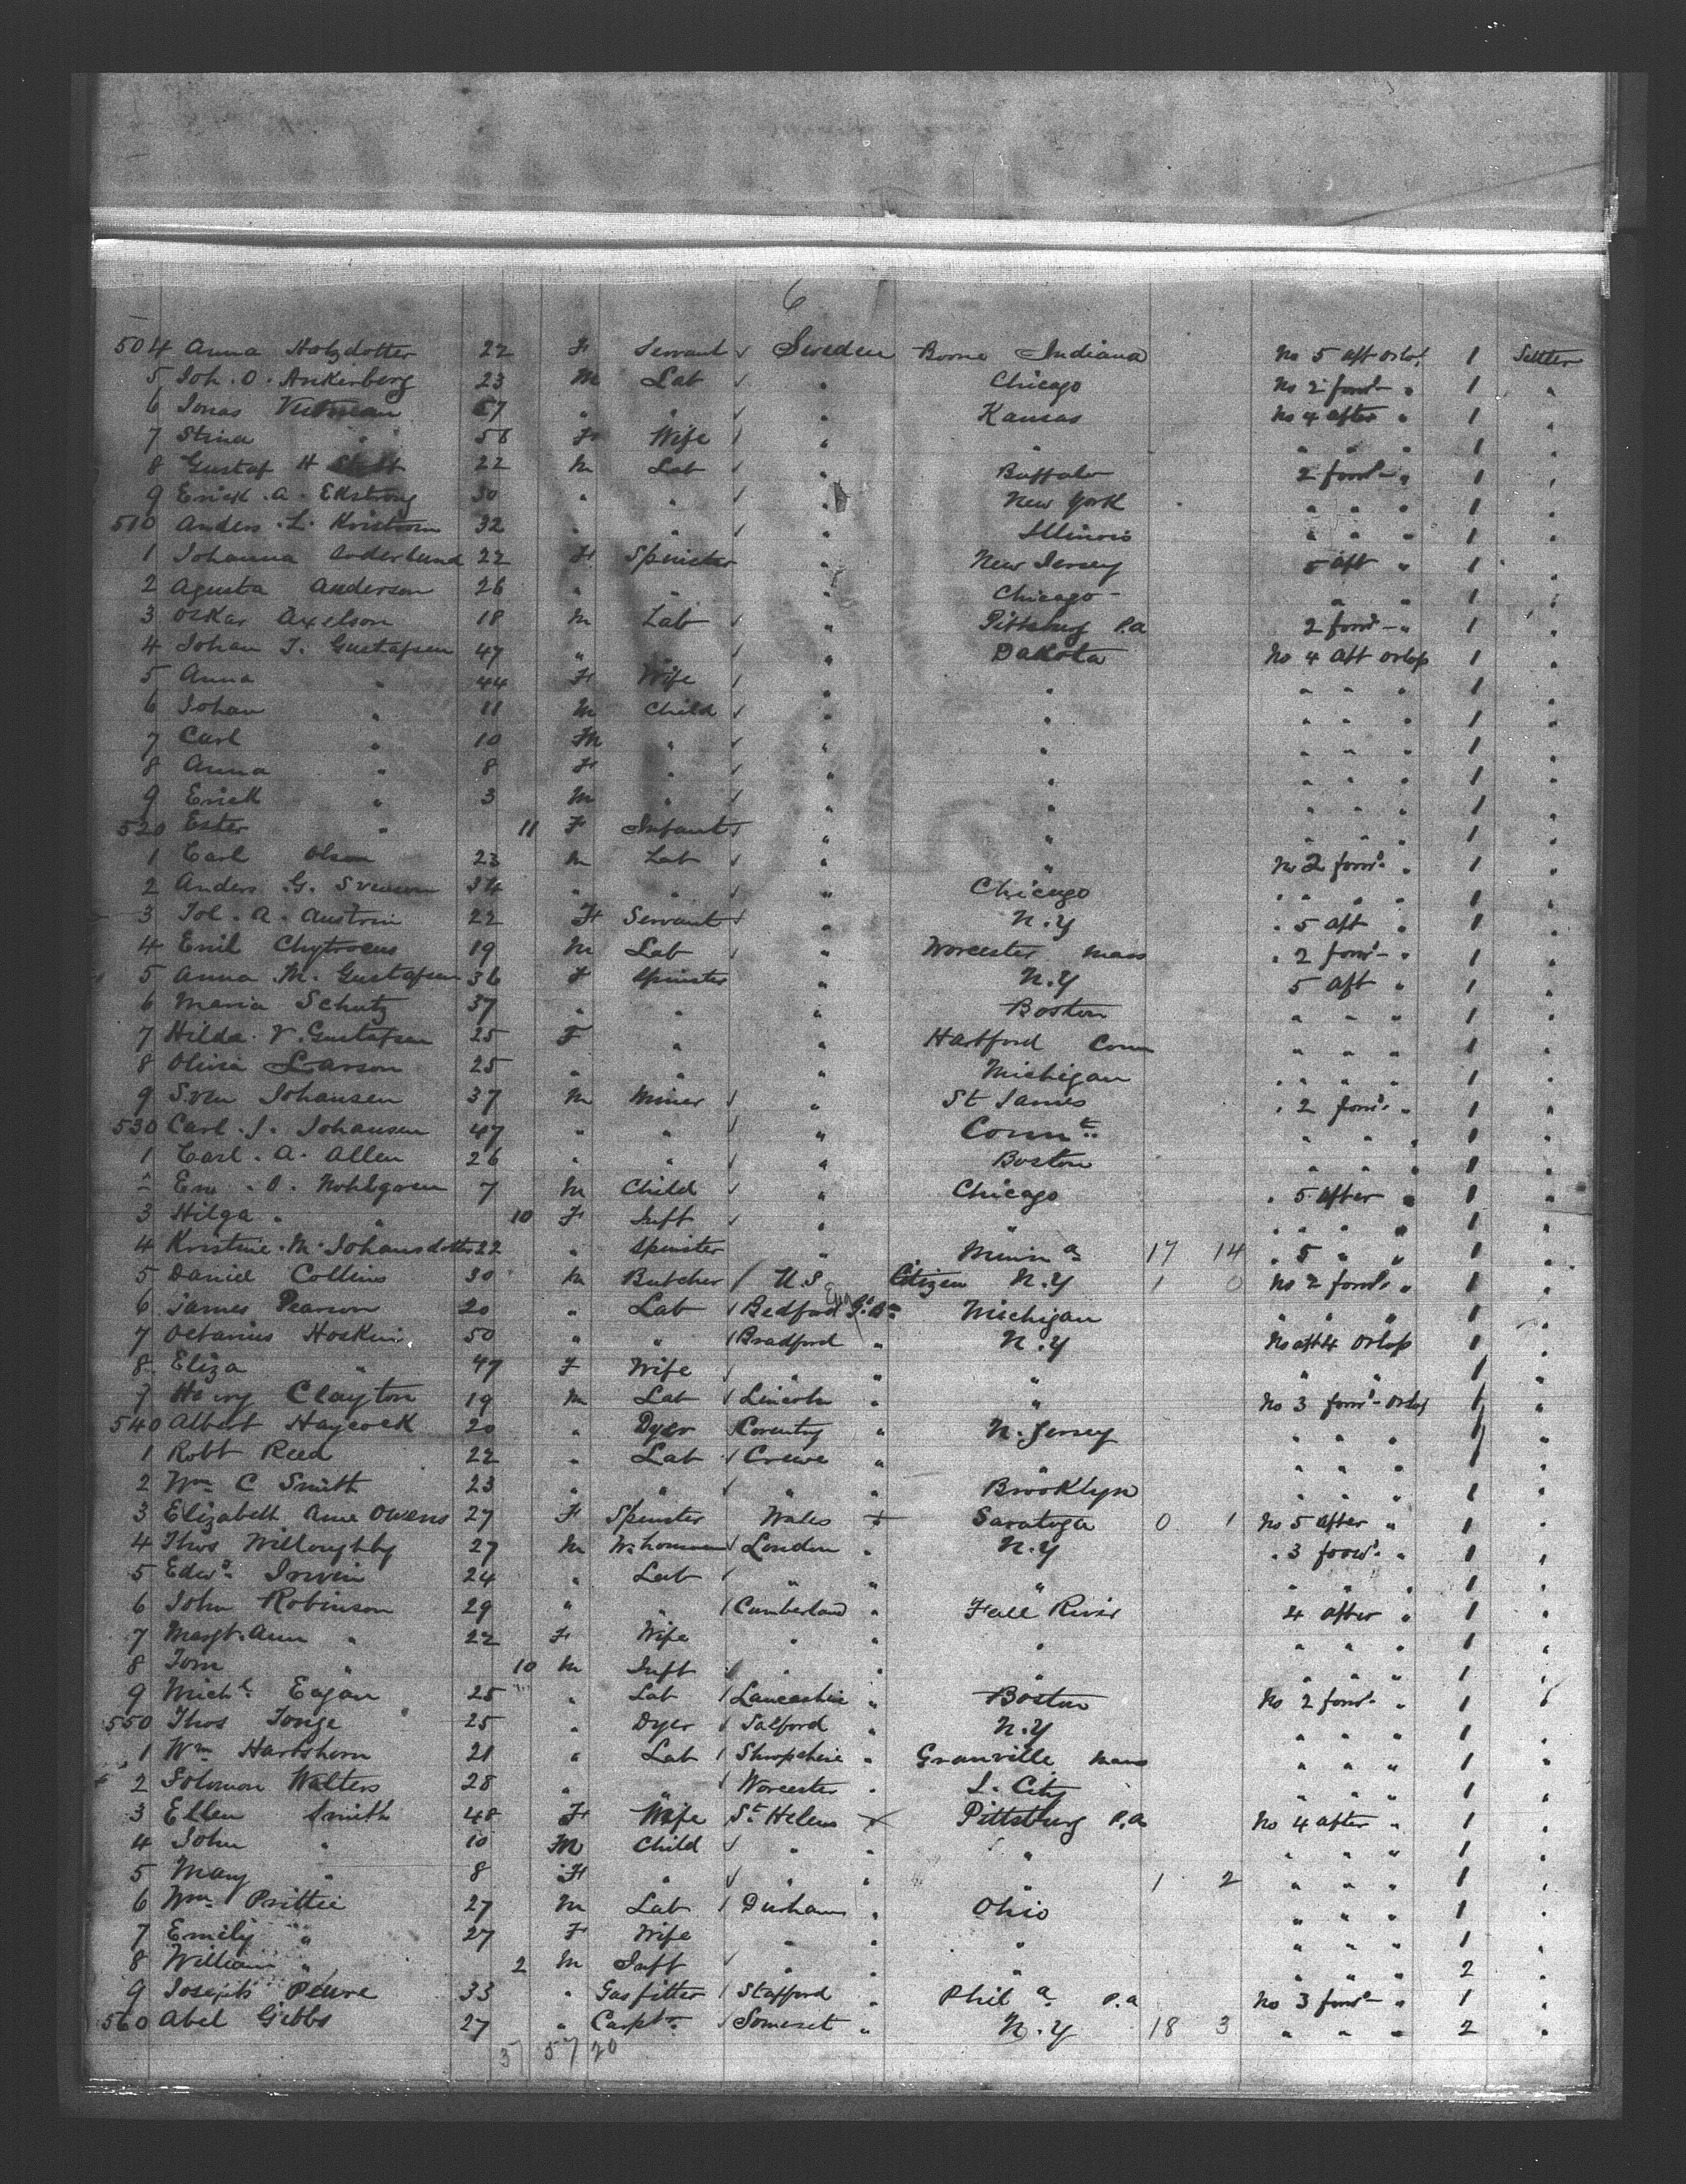 6
504 Anna Holgdotter 22 F Servant ✓ Sweden Boone Indiana No 5 aft orlop 1 Settler
5 Joh. O. Ankerberg 23 M Lab ✓ " Chicago No 2 forwd " 1 "
6 Jonas 57 " " ✓ " Kansas No 4 after " 1 "
7 Stina " 58 F Wife ✓ " " " " " 1 "
8 Gustaf H 22 M Lab ✓ " Buffalo 2 forwd " 1 "
9 Erick. A. Ekstrong 30 " " ✓ " New York " " " 1 "
510 Anders. L. 32 " " ✓ " Illinois " " " 1 "
1 Johanna Soderlund 22 F Spinster " New Jersey 5 aft " 1 "
2 Agusta Anderson 26 " " " Chicago " " 1 "
3 Oskar Axelson 18 M Lab ✓ " Pittsburg P.a 2 forwd " 1 "
4 Johan J. Gustafsen 47 " ✓ " Dakota No 4 aft orlop 1 "
5 Anna " 44 F Wife ✓ " " " " " 1 "
6 Johan " 11 M Child ✓ " " " " " 1 "
7 Carl " 10 M " ✓ " " " " " 1 "
8 Anna " 8 F " ✓ " " " " " 1 "
9 Erick " 3 M " ✓ " " " " " 1 "
520 Ester " 11 F Infant ✓ " " " " " 1 "
1 Carl Olson 23 M Lab ✓ " " No 2 forwd " 1 "
2 Anders. G. Svenson 34 " " ✓ " Chicago " " " " 1 "
3 Jol. A. Austrin 22 F Servant ✓ " N.Y " 5 aft " 1 "
4 Emil Chytraeus 19 M Lab ✓ " Worcester Mass " 2 forwd " 1 "
5 Anna M. Gustafsen 36 F Spinster " N.Y 5 aft " 1 "
6 Maria Schutz 37 " " " Boston " " " 1 "
7 Hilda. V. Gustafsen 25 F " " Hartford Conn " " " 1 "
8 Olivia Larson 25 " " " Michigan " " " " 1 "
9 Sven Johansen 37 M Miner ✓ " St James " 2 forwd " 1 "
530 Carl. J. Johansen 47 " " ✓ " Connt " " " 1 "
1 Carl. A. Allen 26 " " ✓ " Boston " " " 1 "
2 O. 7 M Child ✓ " Chicago " 5 after " 1 "
3 Hilga " " 10 F Inft ✓ " " " " " " 1 "
4 Kristine. M. Johansdotter 22 " Spinster " Minna 17 14 " 5 " " 1 "
5 Daniel Collins 30 M Butcher / U.S Citizen N.Y 1 0 No 2 forwd " 1 "
6 James Pearson 20 " Lab ✓ Bedford Eng Gt Bn Michigan " " " 1 "
7 Octavius Hoskin 50 " " ✓ Bradford " N.Y No aft 4 Orlop 1 "
8 Eliza " 47 F Wife ✓ " " " " " 1 "
9 Henry Clayton 19 M Lab ✓ Lincoln " " No 3 forwd Orlop 1 "
540 Albert Haycock 20 " Dyer ✓ Coventry " N. Jersey " " " 1 "
1 Robt Reed 22 " Lab ✓ Crewe " " " " " 1 "
2 Wm C Smith 23 " " ✓ " " Brooklyn " " " 1 "
3 Elizabeth Anne Owens 27 F Spinster Wales + Saratoga 0 1 No 5 after " 1 "
4 Thos Willoughby 27 M W.houseman ✓ London " N.Y " 3 forwd " 1 "
5 Edwd Irwin 24 " Lab ✓ " " " " " " 1 "
6 John Robinson 29 " " ✓ Cumberland " Fall River 4 after " 1 "
7 Margt. Ann " 22 F Wife " " " " " " 1 "
8 Tom " 10 M Inft ✓ " " " " " " 1 "
9 Michl Eagan 25 " Lab ✓ Lancashire " Boston No 2 forwd " 1 "
550 Thos Tonge 25 " Dyer ✓ Salford " N.Y " " " 1 "
1 Wm Hartshorn 21 " Lab ✓ Shropshire " Granville Mass " " " 1 "
2 Solomon Walters 28 " " ✓ Worcester " L. City " " " 1 "
3 Ellen Smith 48 F Wife St Helens x Pittsburg P.a No 4 after " 1 "
4 John " 10 M Child ✓ " " " " " " 1 "
5 Mary " 8 F " ✓ " " " 1 2 " " " 1 "
6 Wm Prittie 27 M Lab ✓ Durham " Ohio " " " 1 "
7 Emily " 27 F Wife " " " " " " 1 "
8 William " 2 M Inft ✓ " " " " " " 2 "
9 Joseph 33 " Gasfitter ✓ Stafford " Phila P.a No 3 forwd " 1 "
560 Abel Gibbs 27 " Carptr ✓ Somerset " N.Y 18 3 " " " 2 "
37 57 20